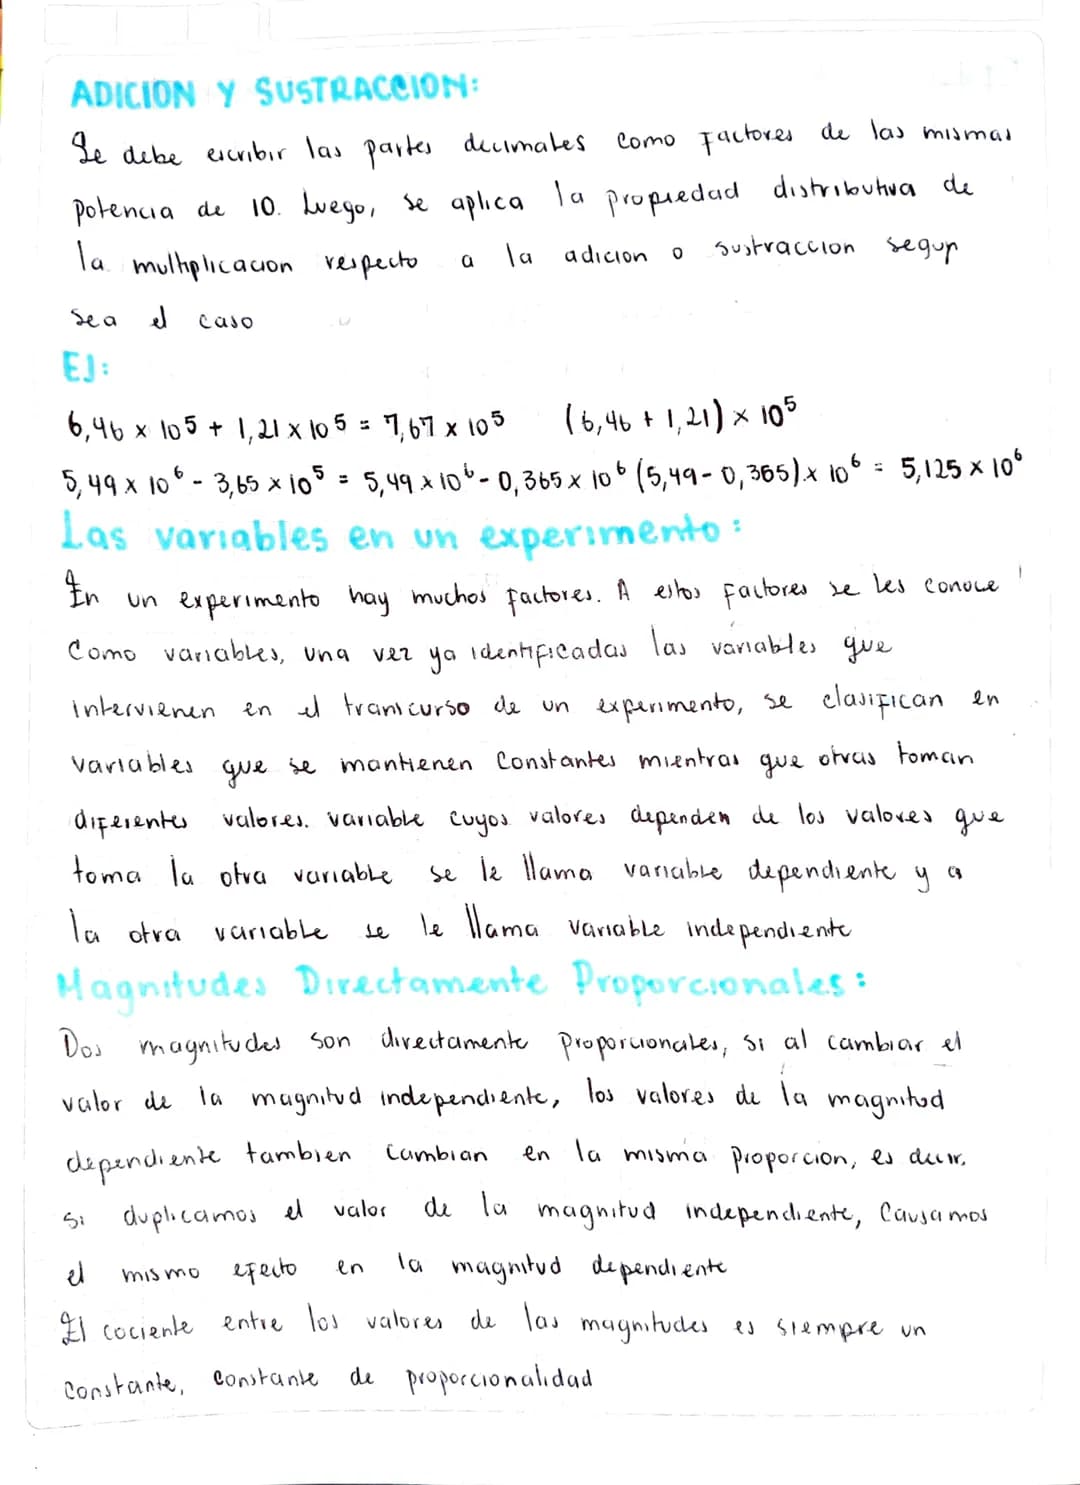 ADICION Y SUSTRACCION:
Se debe escribir las partes decimales como factores de las mismas
potencia de 10. Luego, se aplica la propiedad distributiva de
la multiplicacion respecto a la adicion o sustraccion segun
sea el caso
EJ:
6,46 x 10⁵ + 1,21 x 10⁵ = 7,67 x 10⁵ (6,46 + 1,21) x 10⁵
5,49 x 10⁶ - 3,65 x 10⁵ = 5,49 x 10⁶ - 0,365 x 10⁶ (5,49 - 0,365) x 10⁶ = 5,125 x 10⁶
Las variables en un experimento:
En un experimento hay muchos factores. A estos factores se les conoce
como variables, una vez ya identificadas las variables que
intervienen en el transcurso de un experimento, se clasifican en
variables que se mantienen constantes mientras que otras toman
diferentes valores. variable cuyos valores dependen de los valores que
toma la otra variable se le llama variable dependiente y a
la otra variable se le llama variable independiente
Magnitudes Directamente Proporcionales:
Dos magnitudes son directamente proporcionales, si al cambiar el
valor de la magnitud independiente, los valores de la magnitud
dependiente tambien cambian en la misma proporcion, es decir.
si duplicamos el valor de la magnitud independiente, causamos
el mismo efecto en la magnitud dependiente
El cociente entre los valores de las magnitudes es siempre un
constante, constante de proporcionalidad